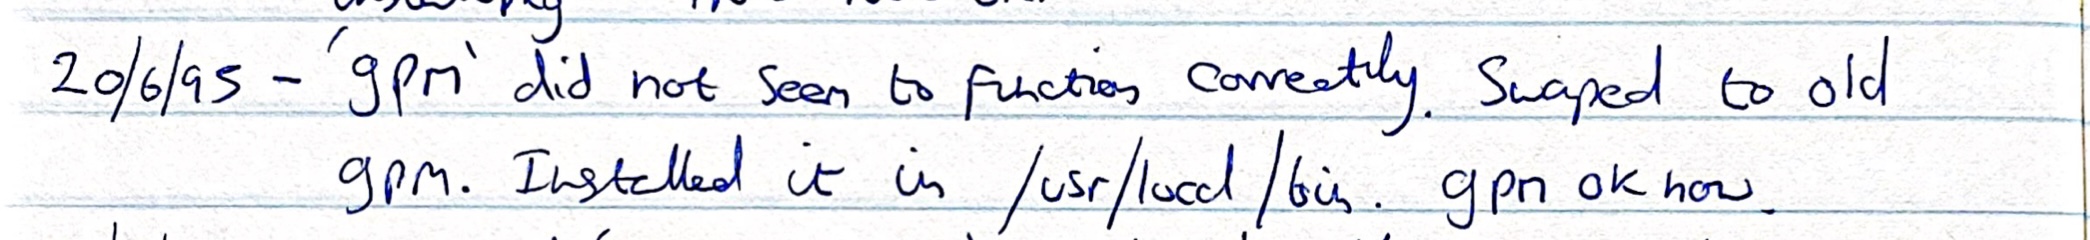 20/6/95 - 'gpm' did not seem to function correctly. Swaped to old
gpm. Installed it in /usr/local/bin. gpm ok now.